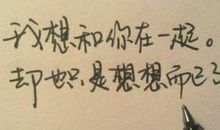 我想和你在一起。
却也只是想想而已了